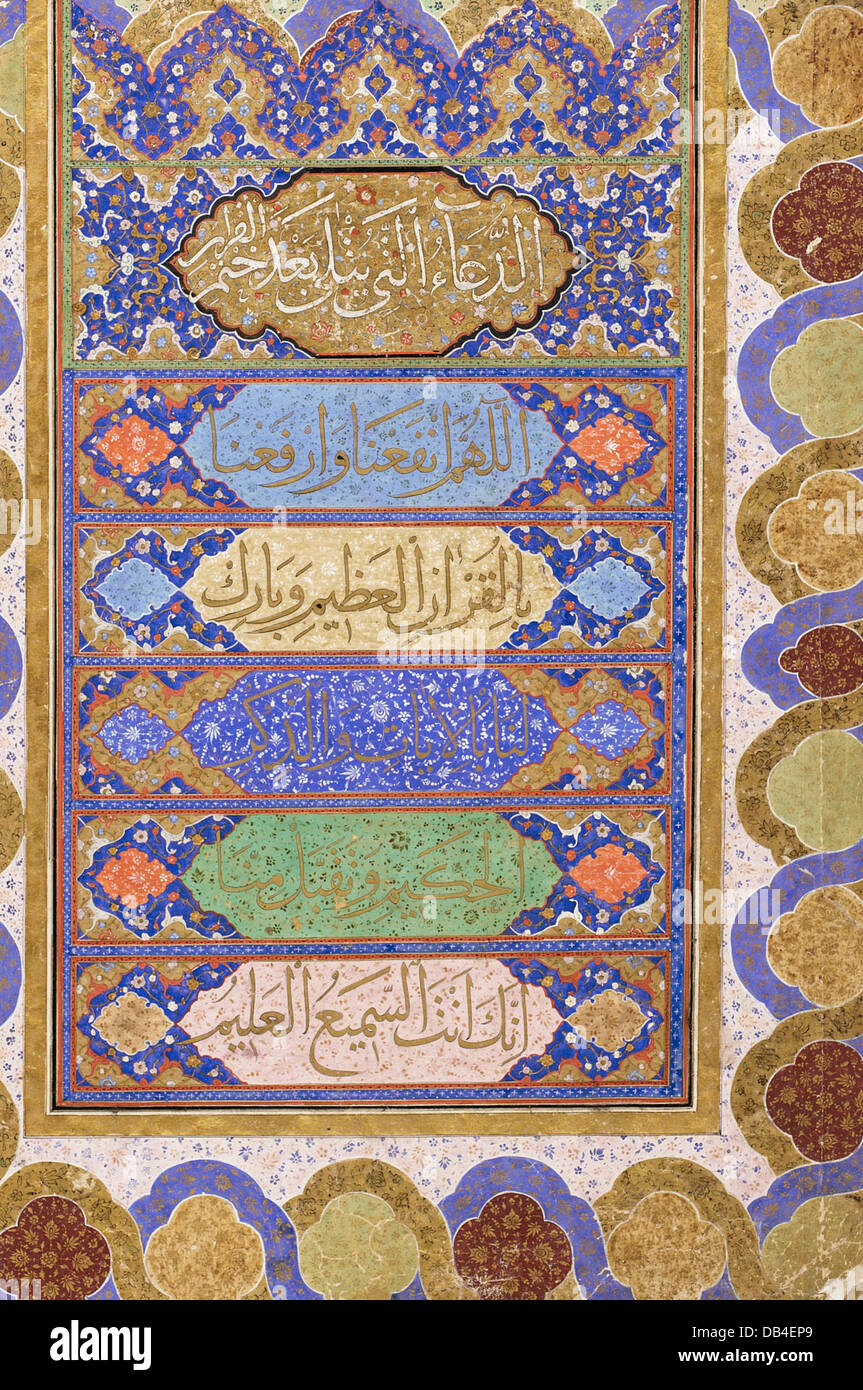 الدُّعَاءُ الَّتِى يُتْلٰى بَعْدَ خَتْمِ القرآن
اَللّٰهُمَّ انْفَعْنَا وَارْفَعْنَا
بِالْقُرْاٰنِ الْعَظٖيمِ وَبَارِكْ
لَنَا بِالْاٰيَاتِ وَالذِّكْرِ
الْحَكٖيمِ وَتَقَبَّلْ مِنَّا
اِنَّكَ اَنْتَ السَّمٖيعُ الْعَلٖيمُ
alamy
alamy
Image ID: DB4EP9
www.alamy.com
alamy stock photo
DB4EP9